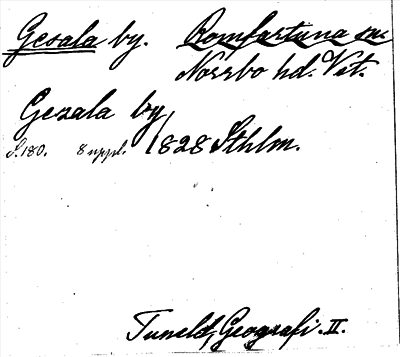 Gesala by. Romfartuna sn.
Norrbo hd. Vst.
Gezala by
S. 180. 8 uppl. 1828 Sthlm.
Tuneld, Geografi. II.